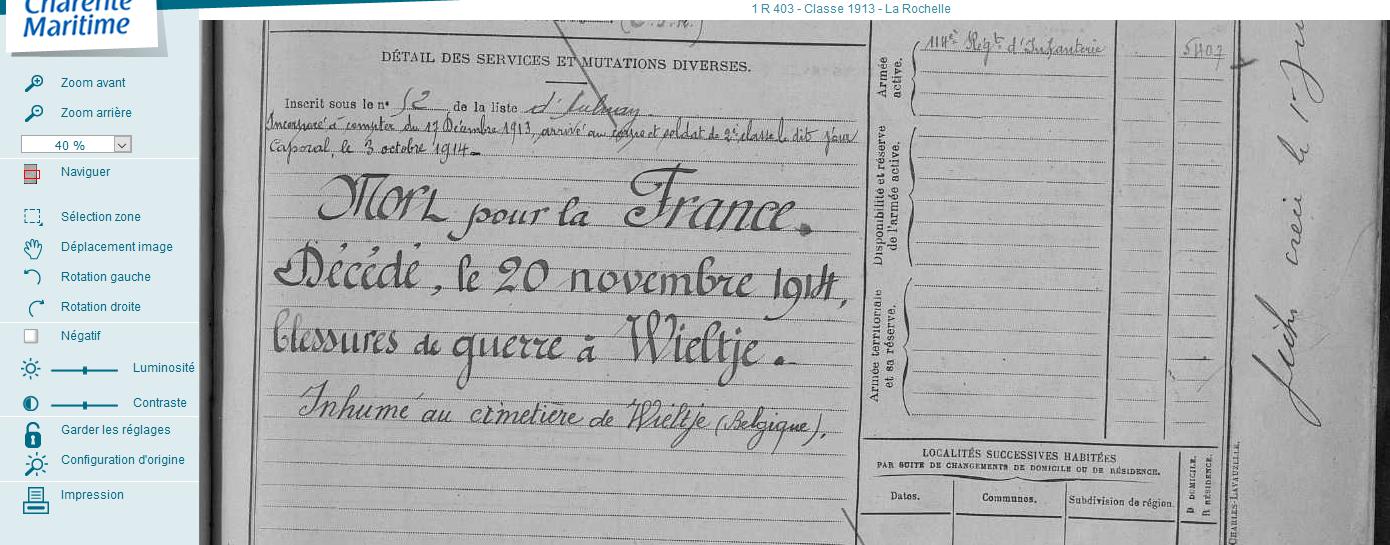 Charente
Maritime
1 R 403 - Classe 1913 - La Rochelle
Zoom avant
Zoom arrière
40 %
Naviguer
Sélection zone
Déplacement image
Rotation gauche
Rotation droite
Négatif
Luminosité
Contraste
Garder les réglages
Configuration d'origine
Impression
DÉTAIL DES SERVICES ET MUTATIONS DIVERSES.
Inscrit sous le nº 52 de la liste d'Aulnay
Incorporé à compter du 17 Décembre 1913, arrivé au corps et soldat de 2e classe le dit jour
Caporal, le 3 octobre 1914.
Mort pour la France.
Décédé, le 20 novembre 1914,
blessures de guerre à Wieltje.
Inhumé au cimetière de Wieltje (Belgique).
Armée
active.
114e Régt d'Infanterie
5407
Disponibilité et réserve
de l'armée active.
Armée territoriale
et sa réserve.
LOCALITÉS SUCCESSIVES HABITÉES
PAR SUITE DE CHANGEMENTS DE DOMICILE OU DE RÉSIDENCE.
Dates.
Communes.
Subdivision de région.
D. DOMICILE.
R. RÉSIDENCE.
CHARLES-LAVAUZELLE.
le 1er